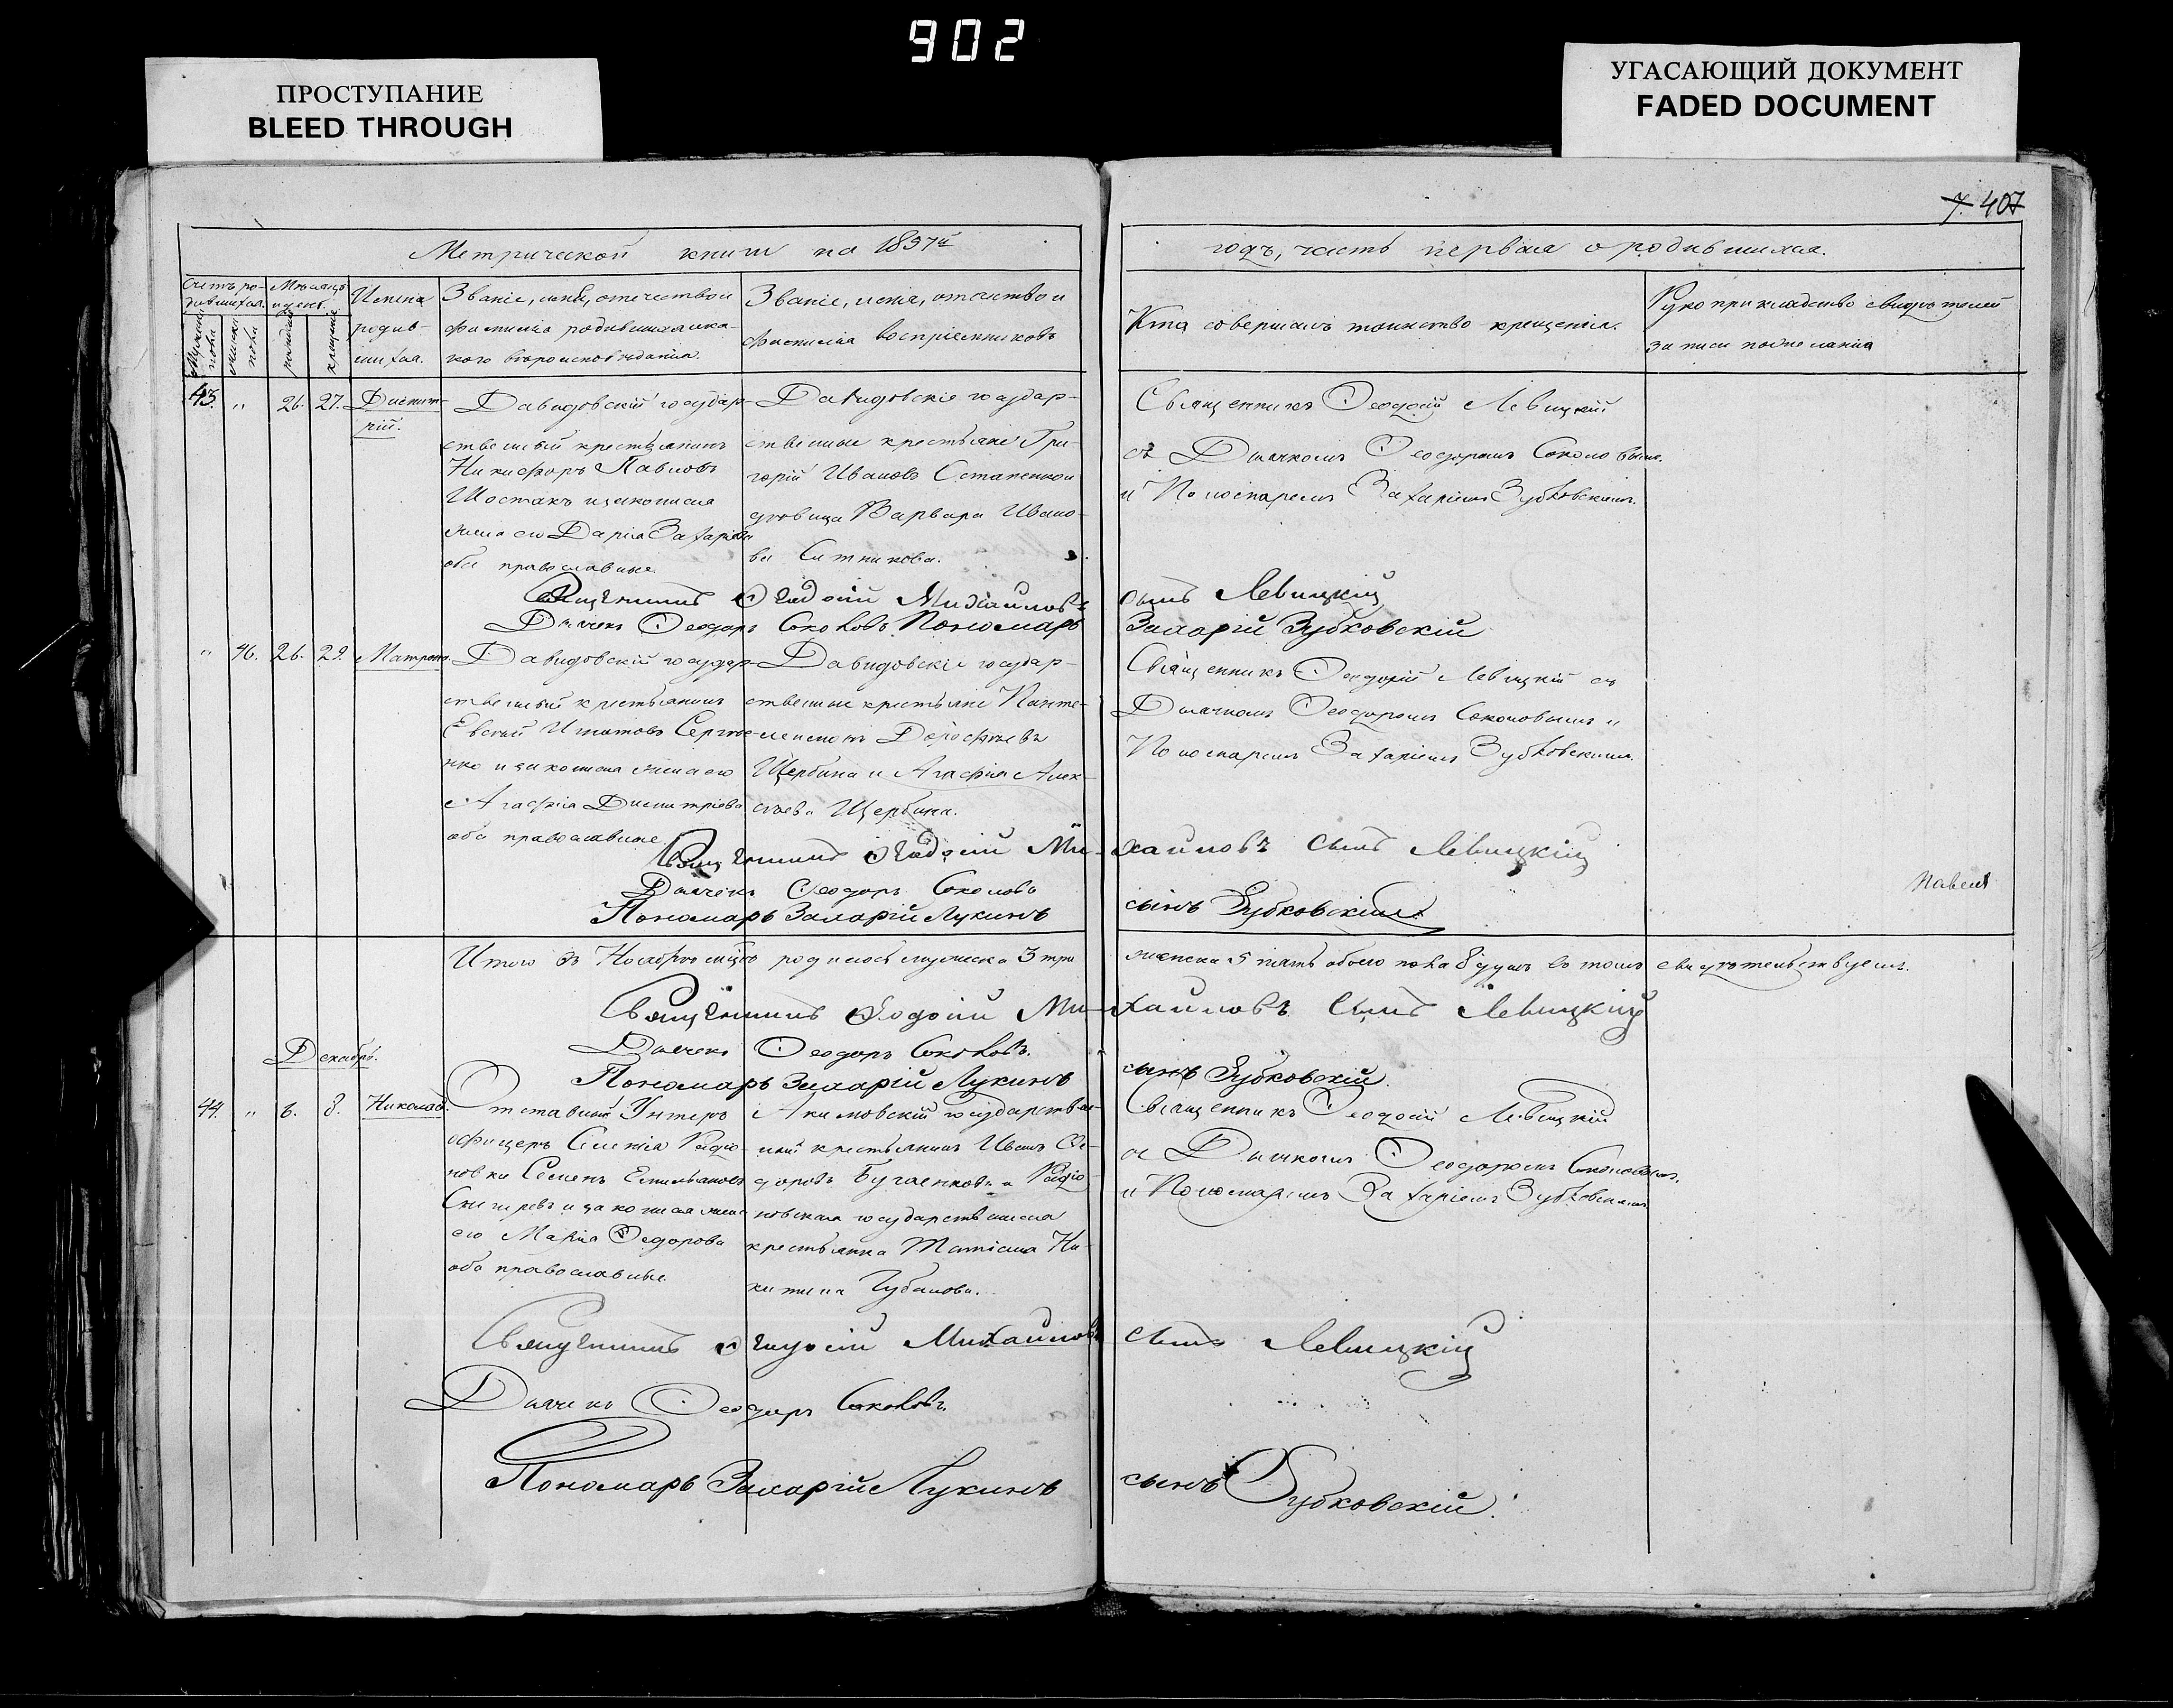 902
ПРОСТУПАНИЕ
BLEED THROUGH
УГАСАЮЩИЙ ДОКУМЕНТ
FADED DOCUMENT
7. 407
Метрической книги на 1837й
годъ, часть первая о родившихся.
Счетъ родившихся.
Мѣсяцъ и день.
Имена родившихся.
Званіе, имя, отечество и
фамилія родившихъ и ка-
кого вѣроисповѣданія.
Званіе, имя, отечество и
фамилія воспріемниковъ
Кто совершалъ таинство крещенія.
Рукоприкладство свидѣтелей
записи по желанію
43. " 26. 27. Димит-
рій.
Давидовскій государ-
ственный крестьянинъ
Никифоръ Павловъ
Шостакъ и законная
жена его Дарія Захаріева
оба православные.
Давидовскіе государ-
ственные крестьяне Гри-
горій Ивановъ Остапенко и
дѣвица Варвара Ивано-
ва Ситникова.
Священникъ Ѳеодосій Левицкій
съ Дьячкомъ Ѳеодоромъ Соколовымъ
и Пономаремъ Захаріемъ Зубковскимъ.
Священникъ Ѳеодосій Михаиловъ сынъ Левицкій
Дьячекъ Ѳеодоръ Соколовъ. Пономарь Захарій Зубковскій
" 46. 26. 29. Матрона.
Давидовскій государ-
ственный крестьянинъ
Евсѣй Игнатовъ Сергѣе-
нко и законная жена его
Агафія Димитріева
оба православные
Давидовскіе государ-
ственные крестьяне Панте-
леимонъ Дорофѣевъ
Щербина и Агафія Алек-
сѣева Щербина.
Священникъ Ѳеодосій Левицкій съ
Дьячкомъ Ѳеодоромъ Соколовымъ и
Пономаремъ Захаріемъ Зубковскимъ.
Священникъ Ѳеодосій Михаиловъ сынъ Левицкій
Дьячекъ Ѳеодоръ Соколовъ
Пономарь Захарій Лукинъ сынъ Зубковскій
Итого въ Ноябрѣ мѣсяцѣ родилось мужеска 3 три женска 5 пять обоего пола 8 душъ въ томъ свидѣтельствуемъ.
Священникъ Ѳеодосій Михаиловъ сынъ Левицкій
Дьячекъ Ѳеодоръ Соколовъ.
Пономарь Захарій Лукинъ сынъ Зубковскій.
Декабрь.
44. " 6. 8. Николай.
Отставный Унтеръ
офицеръ Селенія Родіо-
новки Семенъ Емельяновъ
Снигиревъ и законная жена
его Марія Ѳедорова
оба православные.
Акимовскій государствен-
ный крестьянинъ Иванъ Ѳе-
доровъ Бугаенковъ и Родіо-
новская государственная
крестьянка Татіана Ни-
китина Губанова.
Священникъ Ѳеодосій Левицкій
съ Дьячкомъ Ѳеодоромъ Соколовымъ,
и Пономаремъ Захаріемъ Зубковскимъ
Священникъ Ѳеодосій Михаиловъ сынъ Левицкій
Дьячекъ Ѳеодоръ Соколовъ.
Пономарь Захарій Лукинъ сынъ Зубковскій.